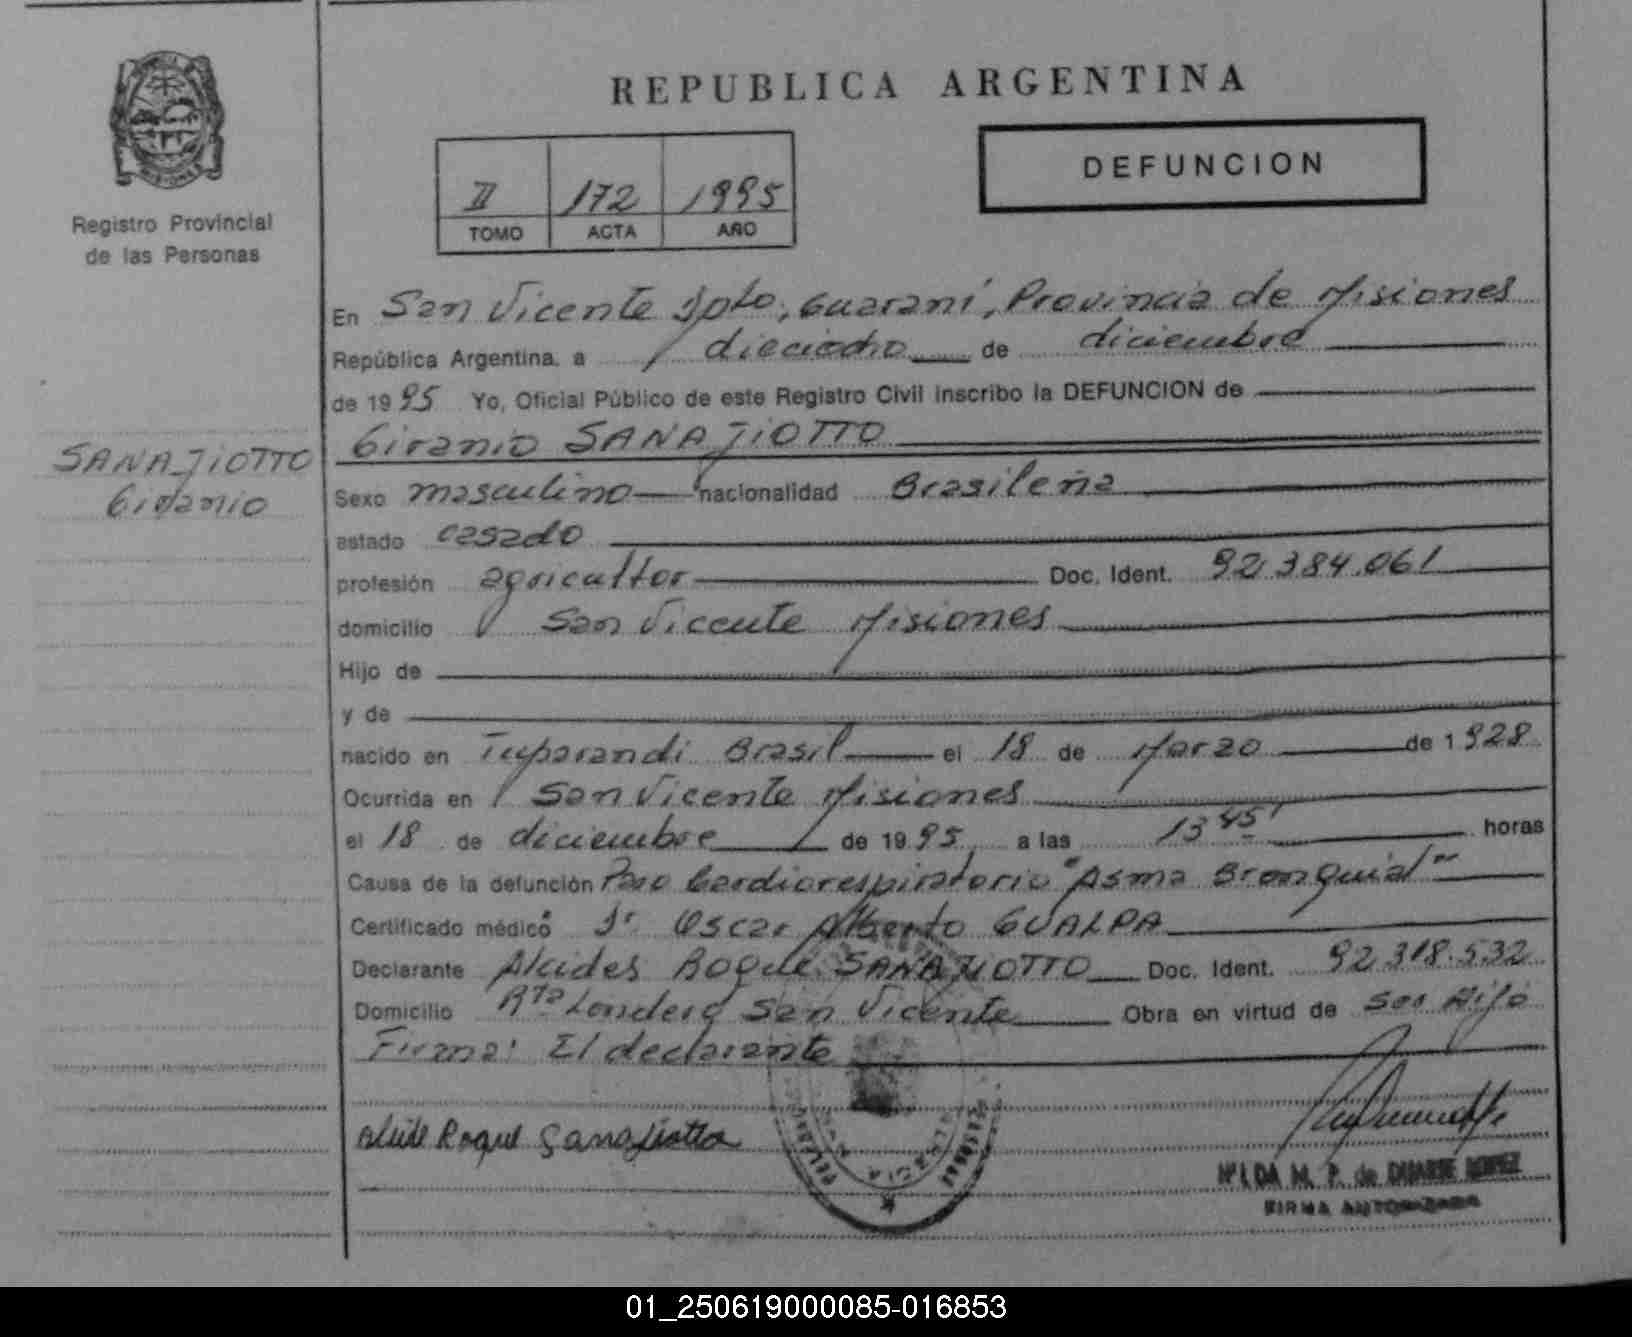 REPUBLICA ARGENTINA
MISIONES
Registro Provincial
de las Personas
II 172 1995
TOMO ACTA AÑO
DEFUNCION
En San Vicente Dpto, Guaraní, Provincia de Misiones
República Argentina, a dieciocho de diciembre
de 1995 Yo, Oficial Público de este Registro Civil inscribo la DEFUNCION de
Giranio SANAJIOTTO
SANAJIOTTO
Giranio
Sexo masculino nacionalidad Brasileña
estado casado
profesión agricultor Doc. Ident. 92.384.061
domicilio San Vicente Misiones
Hijo de
y de
nacido en Tuparandi Brasil el 18 de Marzo de 1928
Ocurrida en San Vicente Misiones
el 18 de diciembre de 1995 a las 13 45' horas
Causa de la defunción Paro Cardiorespiratorio "Asma Bronquial"
Certificado médico Dr Oscar Alberto GUALPA
Declarante Alcides Roque SANAJIOTTO Doc. Ident. 92.318.532
Domicilio Rta Londero San Vicente Obra en virtud de ser Hijo
Firma: El declarante
Alside Roque Sanajiotto
M. P. de DUARTE LOPEZ
FIRMA AUTORIZADA
01_250619000085-016853